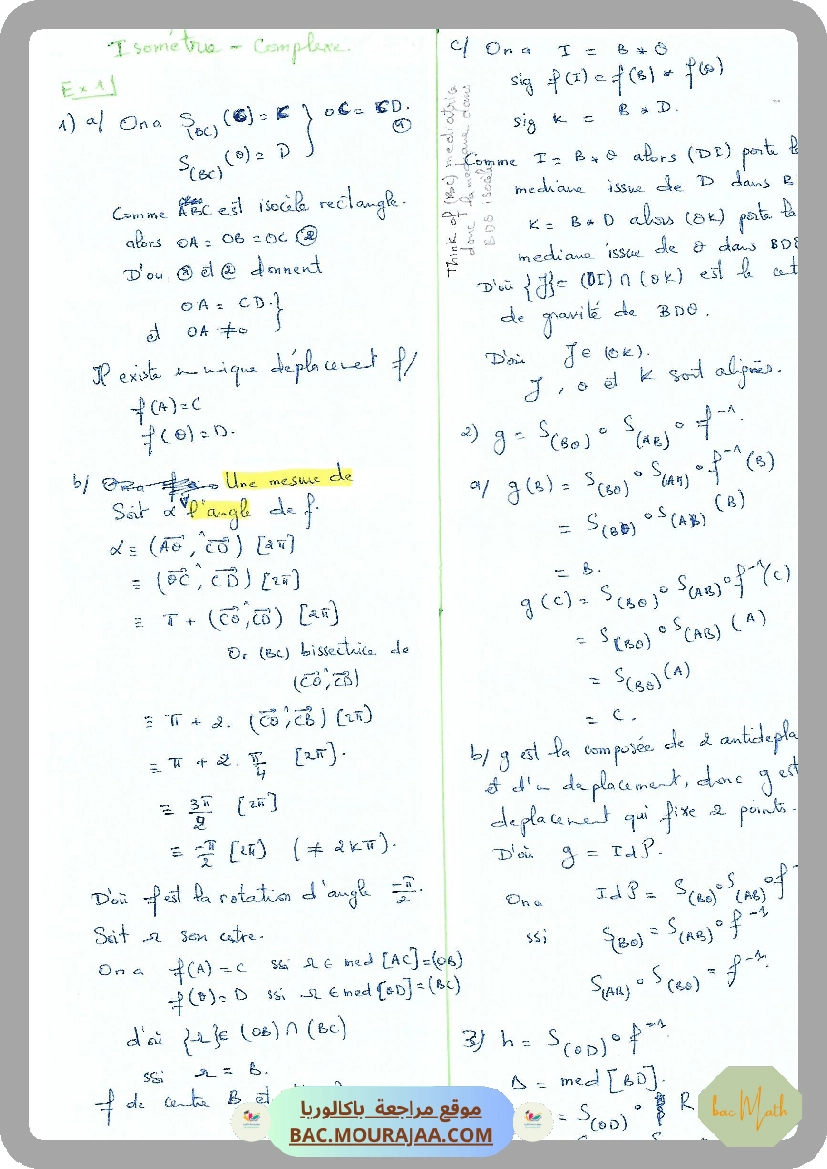 Isométrie - Complexe.
Ex 1
1) a/ On a S(BC)(C) = C } OC = CD. ①
S(BC)(O) = D
Comme ABC est isocèle rectangle.
alors OA = OB = OC ②
D'où ① et ② donnent
OA = CD. }
et OA ≠ 0
Il existe un unique déplacement f /
f(A) = C
f(O) = D.
b/ Une mesure de
Soit α l'angle de f.
α ≡ (AO, CD) [2π]
≡ (OC, CD) [2π]
≡ π + (CO, CD) [2π]
Or (BC) bissectrice de
(CO, CD)
≡ π + 2. (CO, CB) [2π]
≡ π + 2. π/4 [2π].
≡ 3π/2 [2π]
≡ -π/2 [2π] (≠ 2kπ).
D'où f est la rotation d'angle -π/2.
Soit Ω son centre.
On a f(A) = C ssi Ω ∈ med [AC] = (OB)
f(O) = D ssi Ω ∈ med [OD] = (BC)
d'où {Ω} ∈ (OB) ∩ (BC)
ssi Ω = B.
f de centre B et
c/ On a I = B * O
sig f(I) = f(B) * f(O)
sig K = B * D.
Think of (BC) mediatrice
donc la mediane dans
BDS isocèle
Comme I = B * O alors (DI) porte l
mediane issue de D dans B
K = B * D alors (OK) porte la
mediane issue de O dans BD
D'où {J} = (DI) ∩ (OK) est le cent
de gravité de BDO.
D'où J ∈ (OK).
J, O et K sont alignés.
2) g = S(BO) ∘ S(AB) ∘ f⁻¹.
a/ g(B) = S(BO) ∘ S(AB) ∘ f⁻¹(B)
= S(BO) ∘ S(AB) (B)
= B.
g(C) = S(BO) ∘ S(AB) ∘ f⁻¹(C)
= S(BO) ∘ S(AB) (A)
= S(BO) (A)
= C.
b/ g est la composée de 2 antidepla
et d'un deplacement, donc g est
deplacement qui fixe 2 points.
D'où g = IdP.
On a IdP = S(BO) ∘ S(AB) ∘ f⁻
ssi S(BO) = S(AB) ∘ f⁻¹
S(AB) ∘ S(BO) = f⁻¹.
3) h = S(OD) ∘ f⁻¹
Δ = med [BD].
= S(OD) ∘ R
موقع مراجعة باكالوريا
BAC.MOURAJAA.COM
bac Math